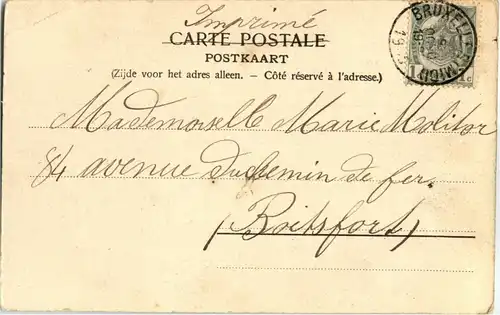 Imprimé
CARTE POSTALE
POSTKAART
(Zijde voor het adres alleen. – Côté réservé à l'adresse.)
Mademoiselle Marie Molitor
84 avenue Du chemin de fer.
(Boitsfort)
BRUXELLES
1 c